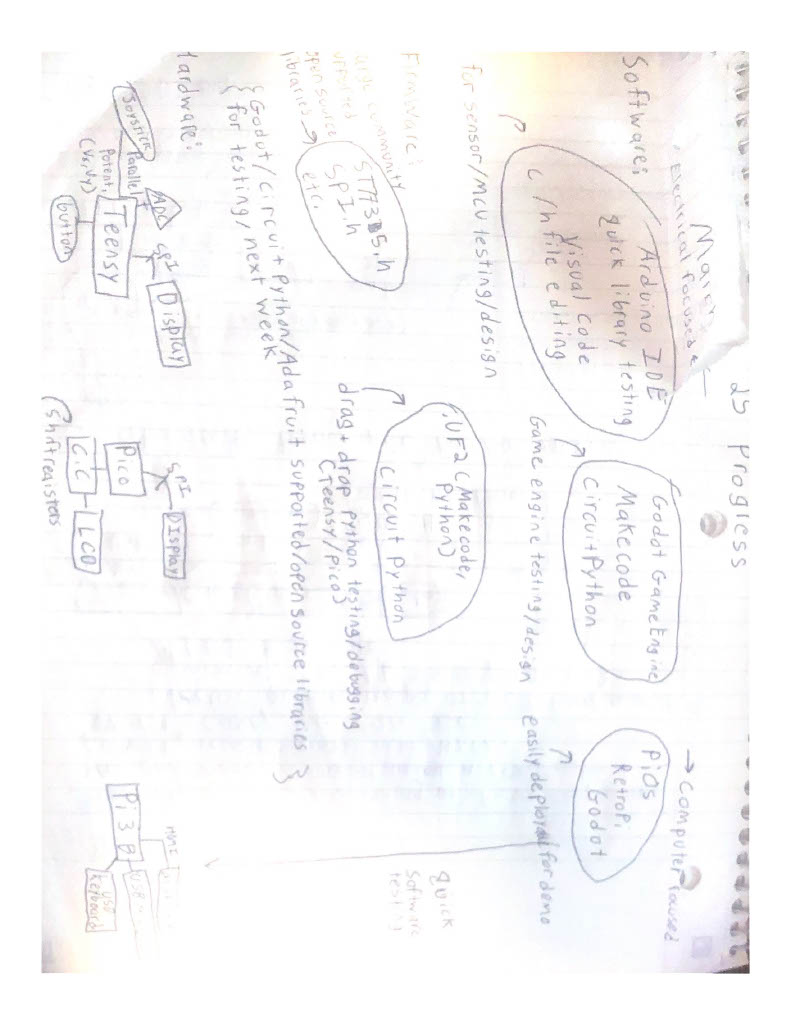 25 Progress
Electrical focused ←
→ Computer focused
Software:
Arduino IDE
quick library testing
Visual Code
c /h file editing
for sensor/mcu testing/design
Godot Game Engine
Makecode
CircuitPython
Game engine testing/design
PiOs
Retropi
Godot
easily deployed for demo
Firmware:
community
supported
open source
libraries →
ST7735.h
SPI.h
etc.
.UF2 (Makecode,
Python)
Circuit Python
drag + drop python testing/debugging
(Teensy/Pico}
quick
software
testing
{Godot/Circuit Python/Adafruit supported/open source libraries }
{for testing/next week
Hardware:
Joystick
Parallel
Potent.
(Vx,Vy)
ADC
SPI
Teensy
Display
button
SPI
Pico
Display
C.C
LCD
Shift registers
Pi 3 B
USB
USB
keyboard